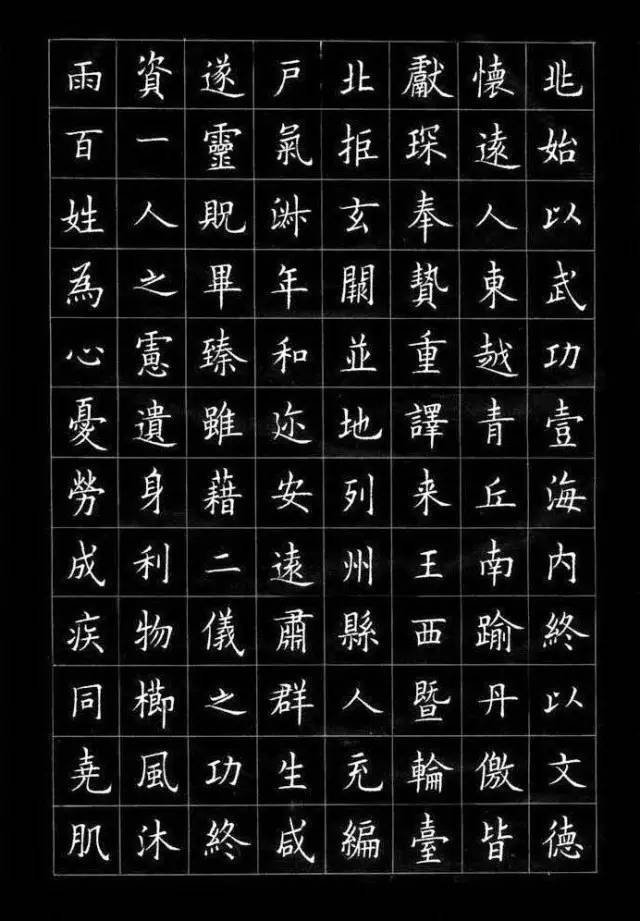 兆始以武功壹海内終以文德
懷遠人東越青丘南踰丹儌皆
獻琛奉贄重譯来王西曁輪臺
北拒玄闕並地列州縣人充編
戸氣淋年和迩安遠肅群生咸
遂靈貺畢臻雖藉二儀之功終
資一人之慮遺身利物櫛風沐
雨百姓為心憂勞成疾同尭肌